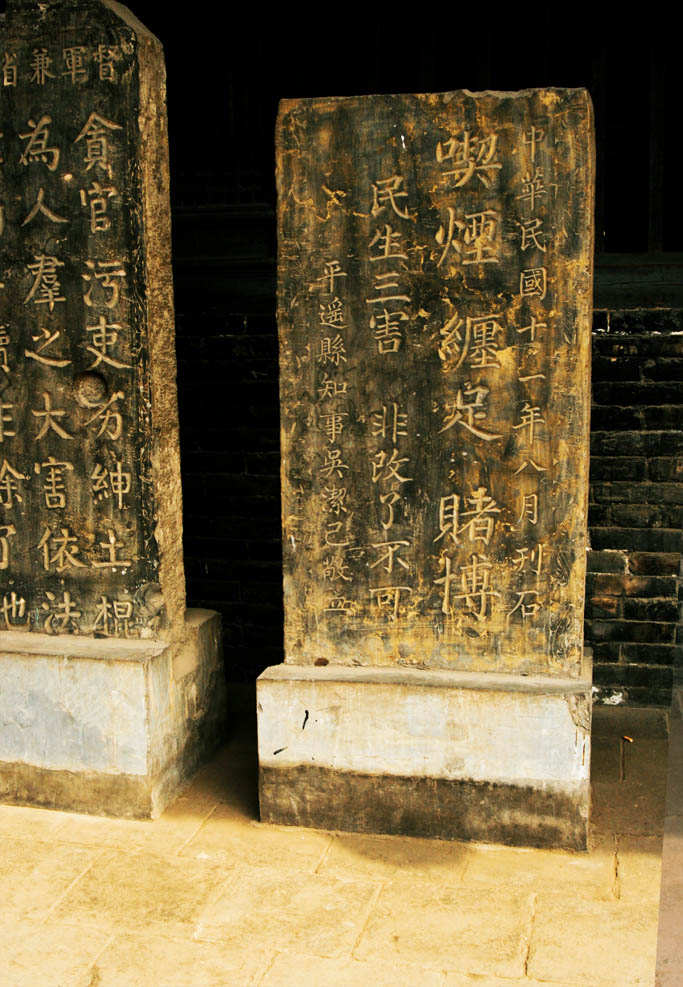 中華民國十一年八月刊石
喫煙纏足賭博
民生三害 非改了不可
平遙縣知事吳潔己敬立
督軍兼省
貪官污吏劣紳土棍
為人羣之大害依法
續非除了他